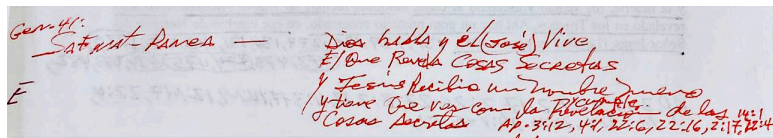 Gen. 41:
Safnat-Panea — Dios habla y él (José) Vive
El Que Revela Cosas Secretas
E y Jesús Recibio un nombre nuevo
y tiene Que ver con la Revelación de las 14:1
Cosas Secretas Ap. 3:12, 4:1, 22:6, 22:16, 2:17, 22:4